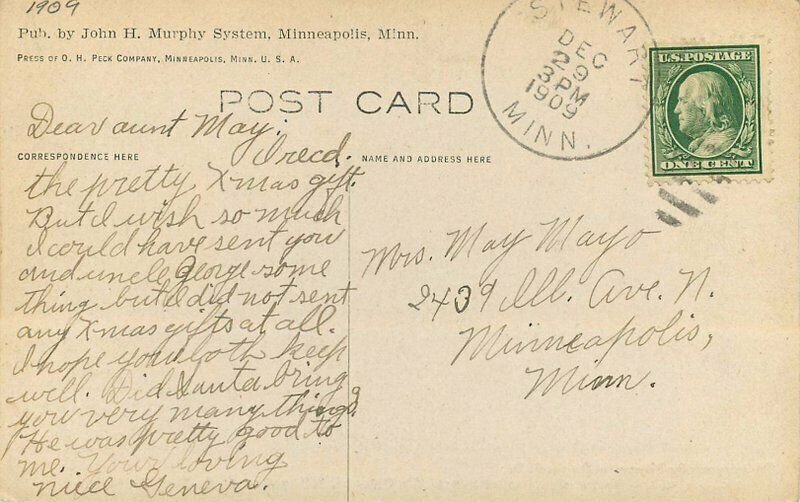 1909
Pub. by John H. Murphy System, Minneapolis, Minn.
PRESS OF O. H. PECK COMPANY, MINNEAPOLIS, MINN. U. S. A.
POST CARD
STEWART
DEC
29
3 PM
1909
MINN.
U.S. POSTAGE
ONE CENT
Dear aunt May;
CORRESPONDENCE HERE
I recd.
the pretty Xmas gift.
But I wish so much
I could have sent you
and uncle George some
thing but I did not sent
any Xmas gifts at all.
I hope you both keep
well. Did Santa bring
you very many things?
He was pretty good to
me. Your loving
niece Geneva.
NAME AND ADDRESS HERE
Mrs. May Mayo
2439 Ave. N.
Minneapolis,
Minn.